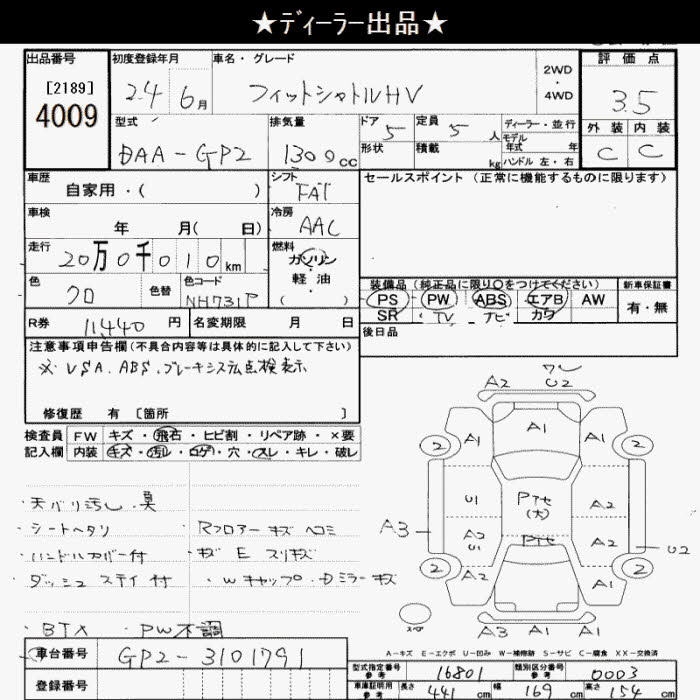 ★ディーラー出品★
出品番号
[2189]
4009
初度登録年月
24 6月
車名・グレード
フィットシャトルHV
2WD
・
4WD
評価点
3.5
外装 内装
C C
型式
DAA-GP2
排気量
1300cc
ドア 5
形状
定員 5人
積載 kg
ディーラー・並行
モデル年式 年
ハンドル 左・右
車歴
自家用・( )
シフト
FAT
セールスポイント (正常に機能するものに限ります)
車検
年 月( 日)
冷房
AAC
走行
20万0千010km
燃料
ガソリン
・
軽油
( )
色
クロ
色替
色コード
NH731P
装備品(純正品に限り○をつけてください)
PS PW ABS エアB AW
SR TV ナビ カワ
新車保証書
有・無
R券 11440円
名変期限 月 日
後日品
注意事項申告欄(不具合内容等は具体的に記入して下さい)
※ VSA、ABS、ブレーキシステム点検表示
修復歴 有 〔箇所 〕
検査員記入欄
FW キズ・飛石・ヒビ割・リペア跡・×要
内装 キズ・汚レ・コゲ・穴・スレ・キレ・破レ
・天バリ汚し、臭
・シートヘタリ ・Rフロアー キズ ヘコミ
・ハンドルカバー付 ・キズ E スリキズ
・ダッシュ ステイ付 ・Wキャップ・Dミラーキズ
・BTX ・PW不調
A2 U2
A1 A1 A1
2 2
U1 Pアセ(大) A2
A3 A2 U1 Pアセ A2 U2
2 2
A2 A1
A3 A1 A1
A-キズ E-エクボ U-凹み W-補修跡 S-サビ C-腐食 XX-交換済
車台番号 GP2-3101791
登録番号
型式指定番号 参考 16801
類別区分番号 参考 0003
車庫証明用 参考 長さ 441cm 幅 169cm 高さ 154cm